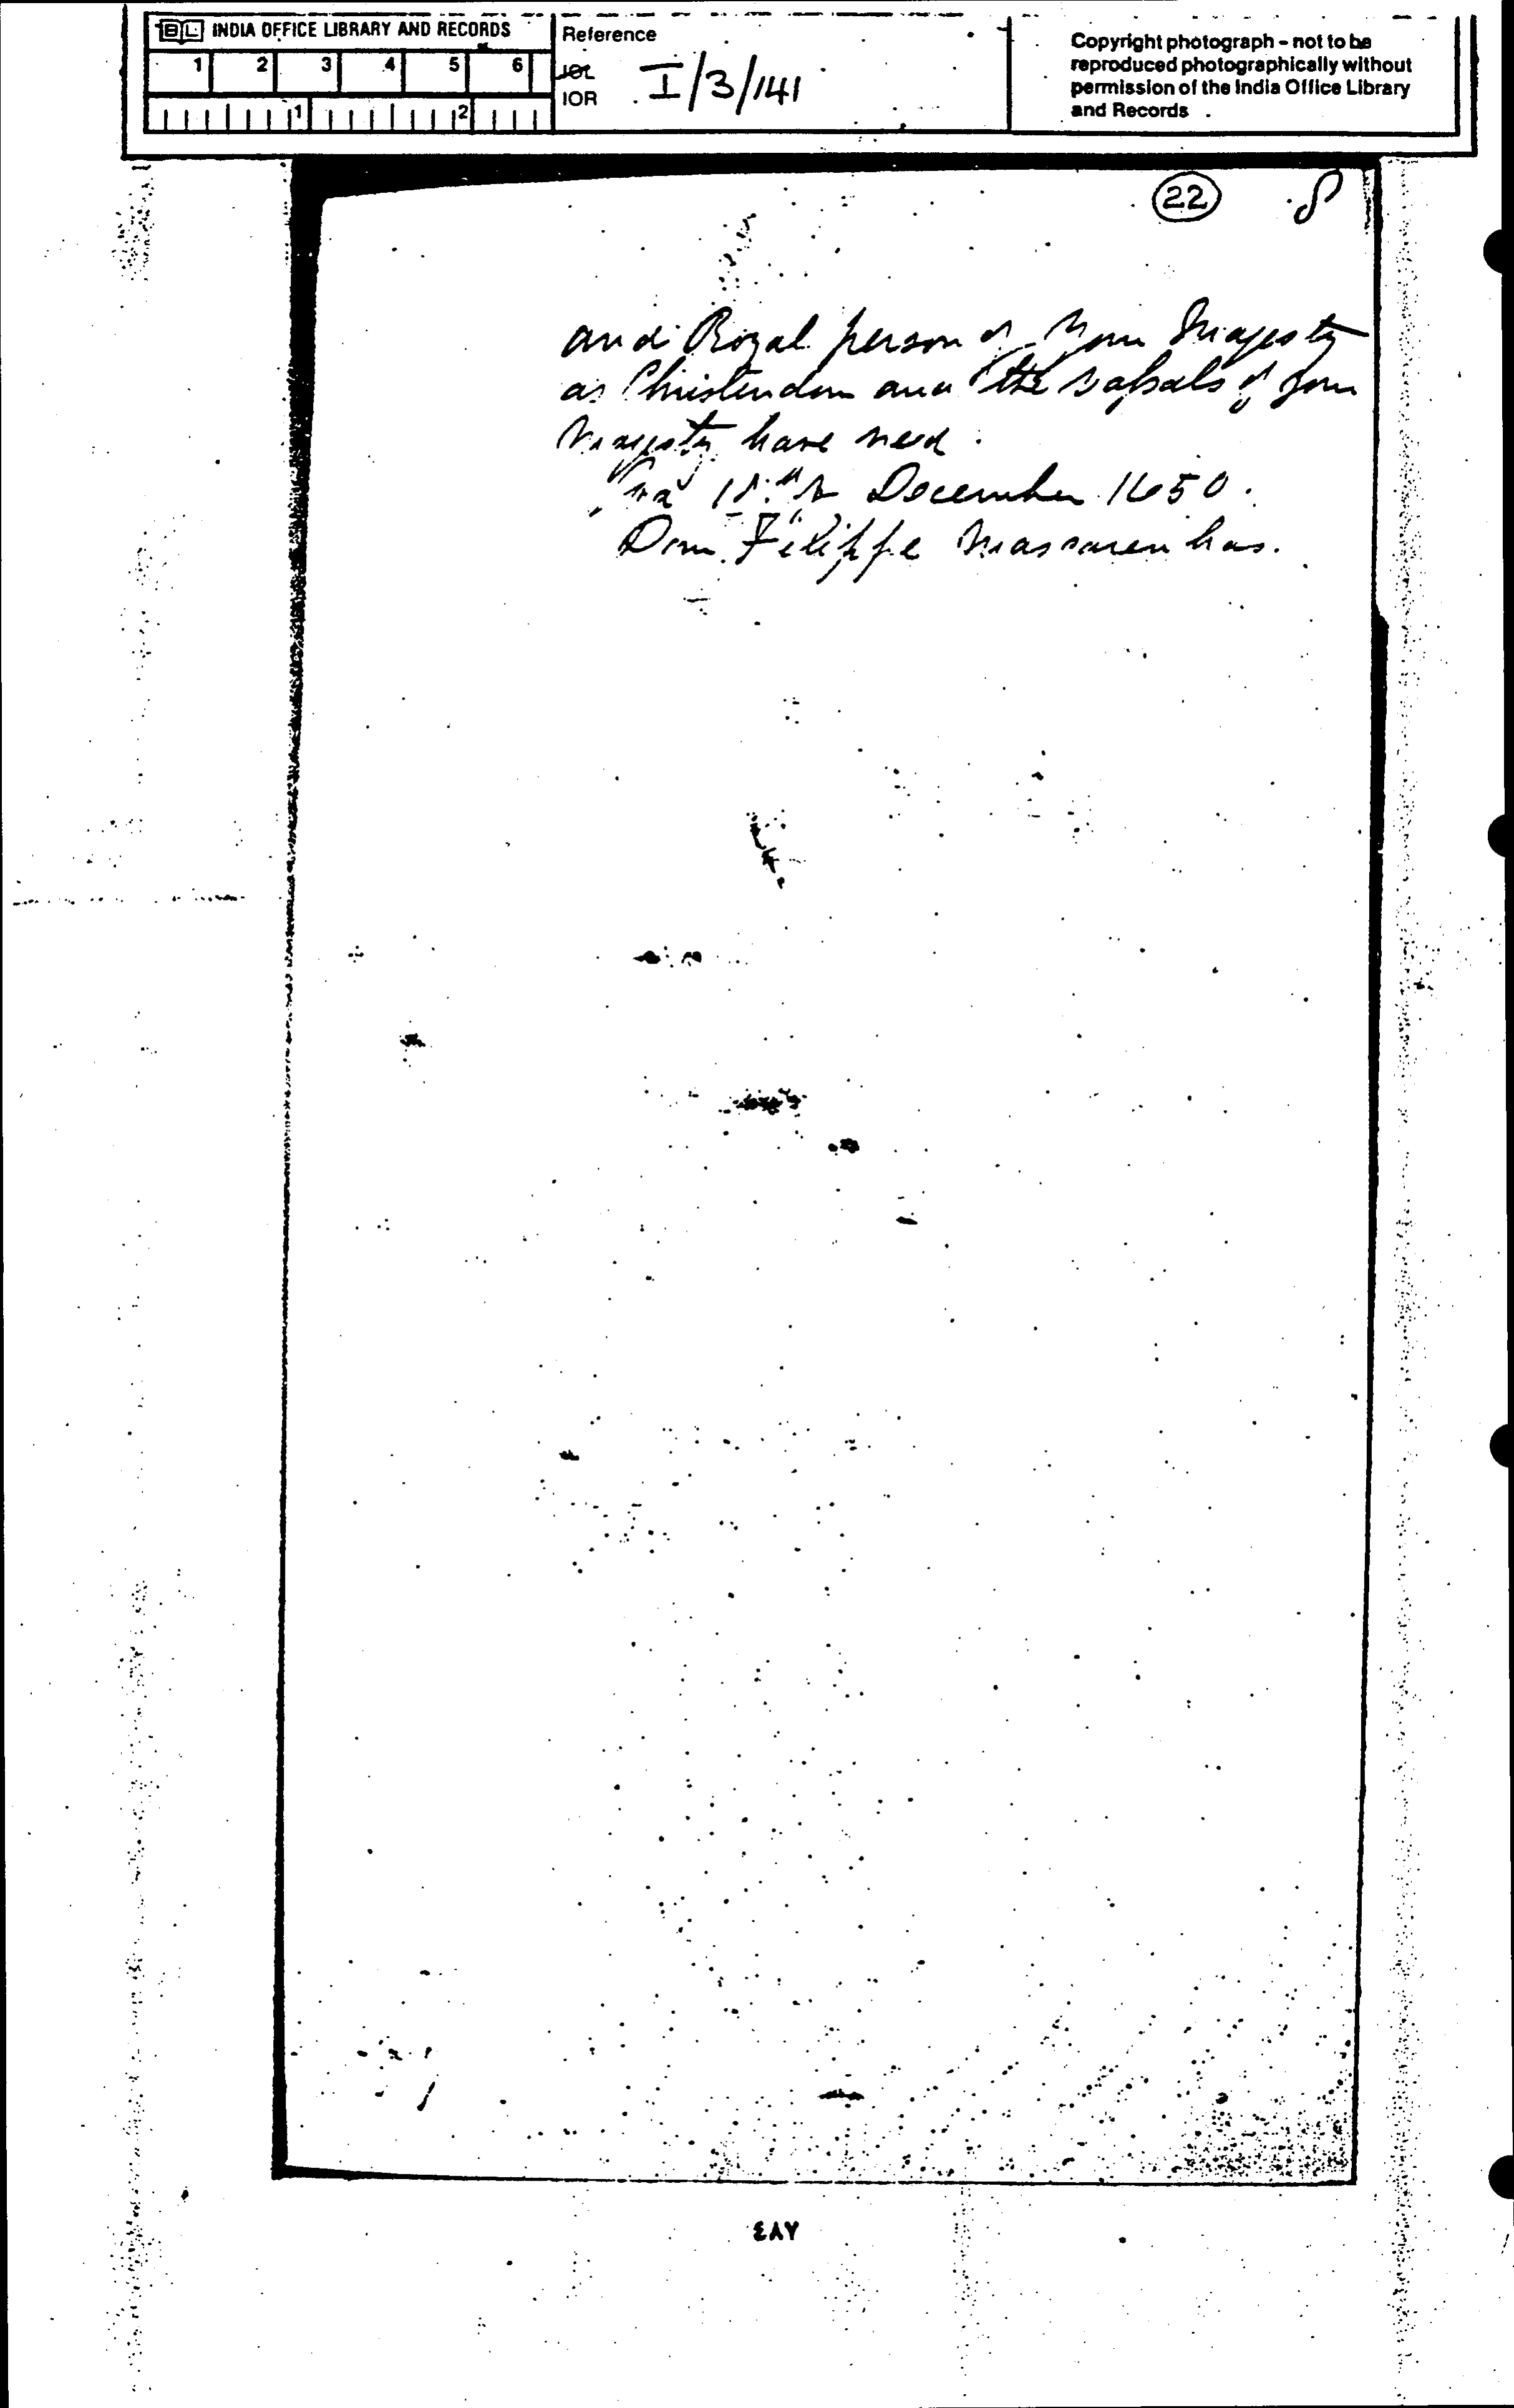 BL INDIA OFFICE LIBRARY AND RECORDS
1 2 3 4 5 6
1 2
Reference
IOL
IOR I/3/141
Copyright photograph - not to be
reproduced photographically without
permission of the India Office Library
and Records
22 8
and Royal person of Your Majesty
as Christendom and the vassals of Your
Majesty have need.
December 1650.
Dom Filippe Mascarenhas.
٤٨٧